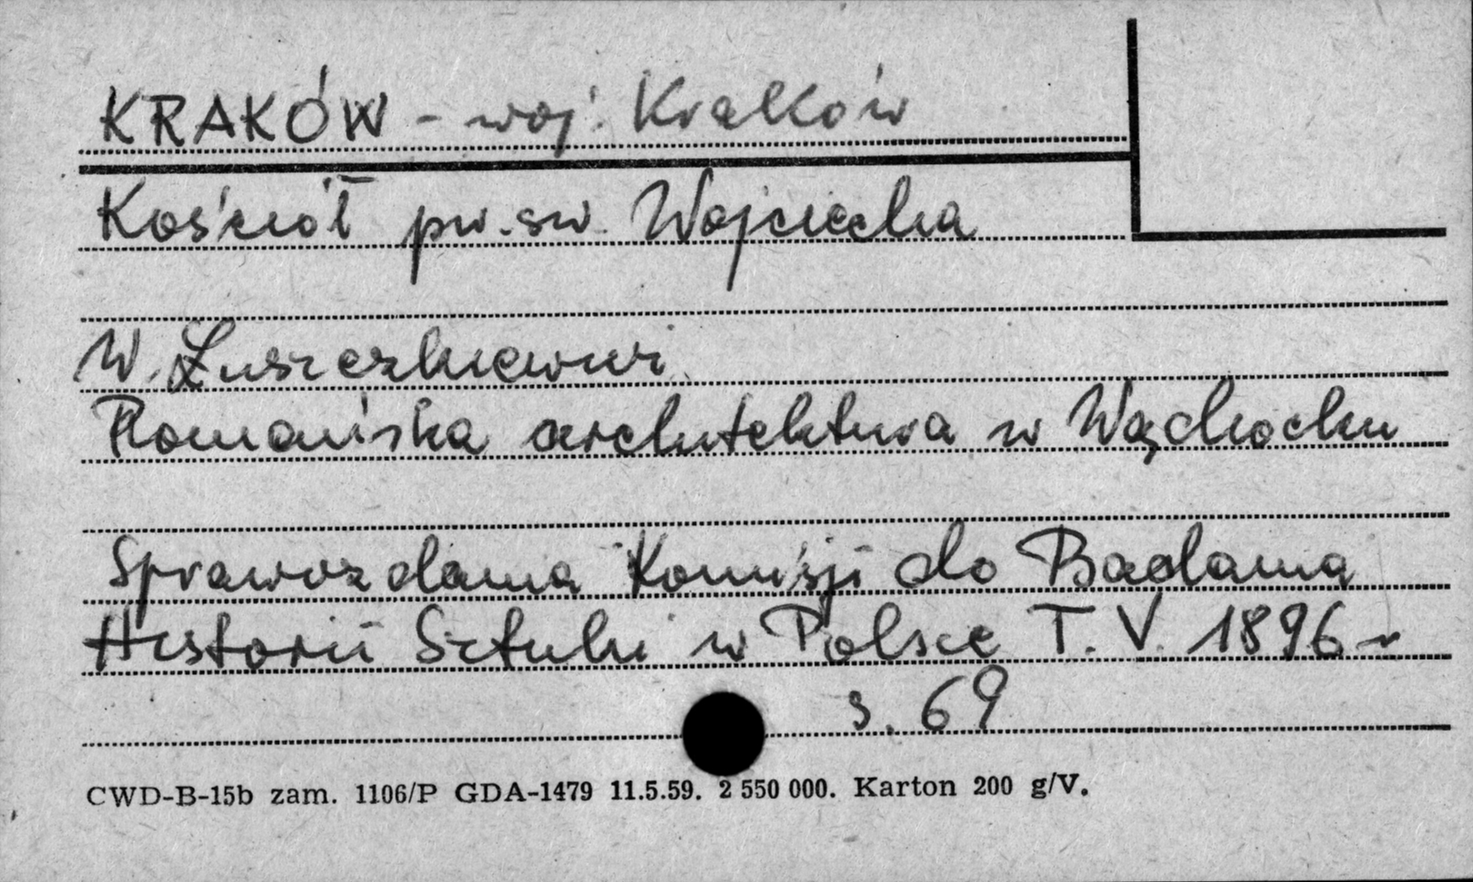 KRAKÓW - woj. Kraków
Kościół pw. św. Wojciecha
W. Łuszczkiewicz
Romańska architektura w Wąchocku
Sprawozdania Komisji do Badania
Historii Sztuki w Polsce T. V. 1896 r
s. 69
CWD-B-15b zam. 1106/P GDA-1479 11.5.59. 2 550 000. Karton 200 g/V.